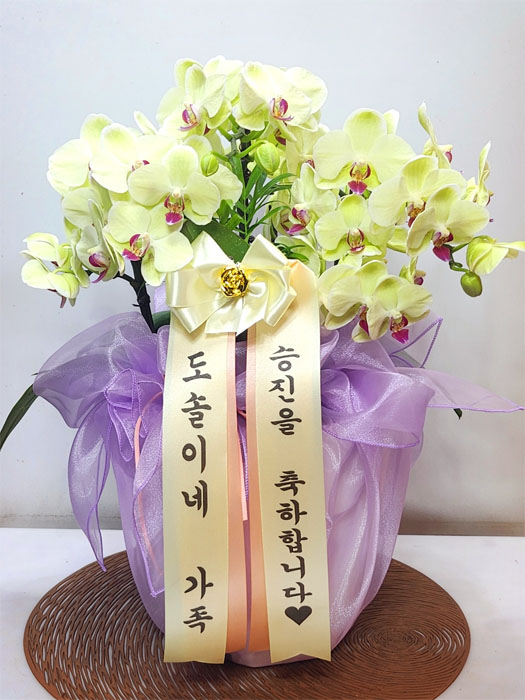 승진을 축하합니다♥
도솔이네 가족